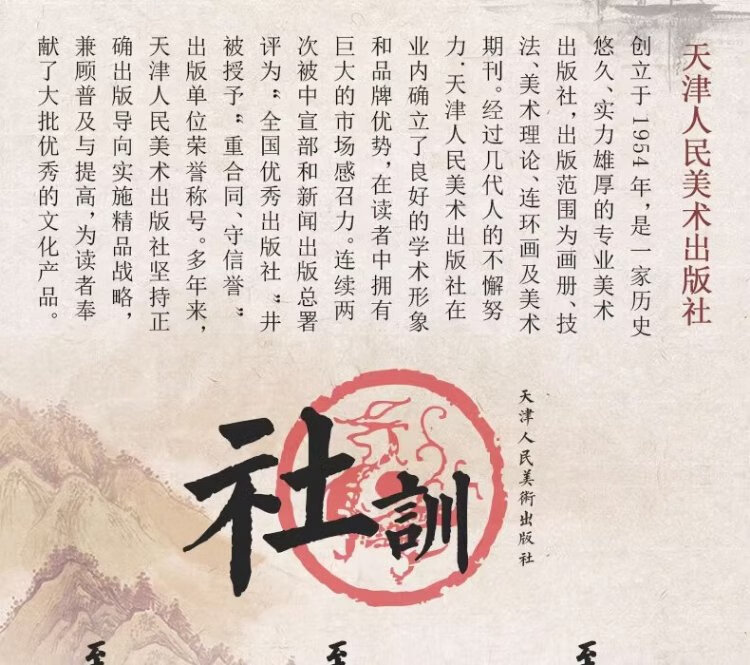 天津人民美术出版社
创立于1954年，是一家历史
悠久、实力雄厚的专业美术
出版社，出版范围为画册、技
法、美术理论、连环画及美术
期刊。经过几代人的不懈努
力·天津人民美术出版社在
业内确立了良好的学术形象
和品牌优势，在读者中拥有
巨大的市场感召力。连续两
次被中宣部和新闻出版总署
评为“全国优秀出版社“井
被授予“重合同、守信誉“
出版单位荣誉称号。多年来，
天津人民美术出版社坚持正
确出版导向实施精品战略，
兼顾普及与提高，为读者奉
献了大批优秀的文化产品。
天津人民美術出版社
社訓